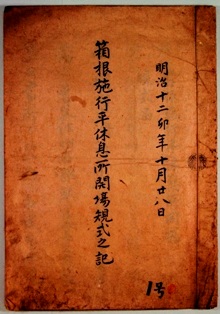 明治十二卯年十月廿八日
箱根施行平休息所開場規式之記
1号